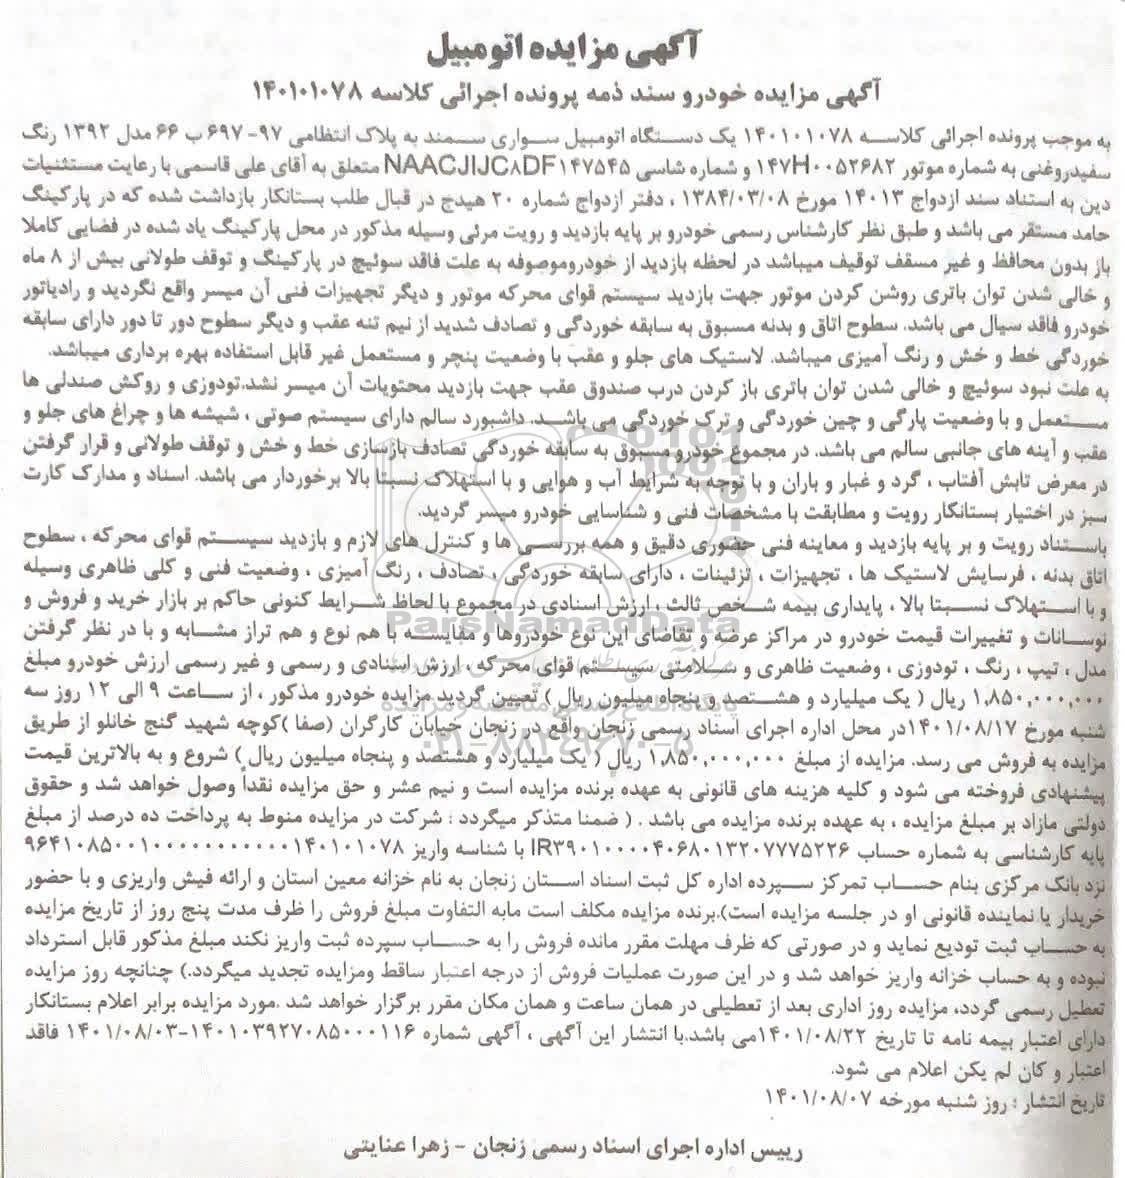 آگهی مزایده اتومبیل
آگهی مزایده خودرو سند ذمه پرونده اجرائی کلاسه ۱۴۰۱۰۱۰۷۸
به موجب پرونده اجرائی کلاسه ۱۴۰۱۰۱۰۷۸ یک دستگاه اتومبیل سواری سمند به پلاک انتظامی ۹۷- ۶۹۷ ب ۶۶ مدل ۱۳۹۲ رنگ
سفیدروغنی به شماره موتور ۱۴۷H۰۰۵۲۶۸۲ و شماره شاسی NAACJIJC۸DF۱۴۷۵۴۵ متعلق به آقای علی قاسمی با رعایت مستثنیات
دین به استناد سند ازدواج ۱۴۰۱۳ مورخ ۱۳۸۴/۰۳/۰۸ ، دفتر ازدواج شماره ۲۰ هیدج در قبال طلب بستانکار بازداشت شده که در پارکینگ
حامد مستقر می باشد و طبق نظر کارشناس رسمی خودرو بر پایه بازدید و رویت مرئی وسیله مذکور در محل پارکینگ یاد شده در فضایی کاملا
باز بدون محافظ و غیر مسقف توقیف میباشد در لحظه بازدید از خودروموصوفه به علت فاقد سوئیچ در پارکینگ و توقف طولانی بیش از ۸ ماه
و خالی شدن توان باتری روشن کردن موتور جهت بازدید سیستم قوای محرکه موتور و دیگر تجهیزات فنی آن میسر واقع نگردید و رادیاتور
خودرو فاقد سیال می باشد. سطوح اتاق و بدنه مسبوق به سابقه خوردگی و تصادف شدید از نیم تنه عقب و دیگر سطوح دور تا دور دارای سابقه
خوردگی خط و خش و رنگ آمیزی میباشد. لاستیک های جلو و عقب با وضعیت پنچر و مستعمل غیر قابل استفاده بهره برداری میباشد.
به علت نبود سوئیچ و خالی شدن توان باتری باز کردن درب صندوق عقب جهت بازدید محتویات آن میسر نشد.تودوزی و روکش صندلی ها
مستعمل و با وضعیت پارگی و چین خوردگی و ترک خوردگی می باشد. داشبورد سالم دارای سیستم صوتی ، شیشه ها و چراغ های جلو و
عقب و آینه های جانبی سالم می باشد. در مجموع خودرو مسبوق به سابقه خوردگی تصادف بازسازی خط و خش و توقف طولانی و قرار گرفتن
در معرض تابش آفتاب ، گرد و غبار و باران و با توجه به شرایط آب و هوایی و با استهلاک نسبتا بالا برخوردار می باشد. اسناد و مدارک کارت
سبز در اختیار بستانکار رویت و مطابقت با مشخصات فنی و شناسایی خودرو میسر گردید.
باستناد رویت و بر پایه بازدید و معاینه فنی حضوری دقیق و همه بررسی ها و کنترل های لازم و بازدید سیستم قوای محرکه ، سطوح
اتاق بدنه ، فرسایش لاستیک ها ، تجهیزات ، تزئینات ، دارای سابقه خوردگی ، تصادف ، رنگ آمیزی ، وضعیت فنی و کلی ظاهری وسیله
و با استهلاک نسبتا بالا ، پایداری بیمه شخص ثالث ، ارزش اسنادی در مجموع با لحاظ شرایط کنونی حاکم بر بازار خرید و فروش و
نوسانات و تغییرات قیمت خودرو در مراکز عرضه و تقاضای این نوع خودروها و مقایسه با هم نوع و هم تراز مشابه و با در نظر گرفتن
مدل ، تیپ ، رنگ ، تودوزی ، وضعیت ظاهری و سلامتی سیستم قوای محرکه ، ارزش اسنادی و رسمی و غیر رسمی ارزش خودرو مبلغ
۱,۸۵۰,۰۰۰,۰۰۰ ریال ( یک میلیارد و هشتصد و پنجاه میلیون ریال ) تعیین گردید.مزایده خودرو مذکور ، از ساعت ۹ الی ۱۲ روز سه
شنبه مورخ ۱۴۰۱/۰۸/۱۷در محل اداره اجرای اسناد رسمی زنجان واقع در زنجان خیابان کارگران (صفا )کوچه شهید گنج خانلو از طریق
مزایده به فروش می رسد. مزایده از مبلغ ۱,۸۵۰,۰۰۰,۰۰۰ ریال ( یک میلیارد و هشتصد و پنجاه میلیون ریال ) شروع و به بالاترین قیمت
پیشنهادی فروخته می شود و کلیه هزینه های قانونی به عهده برنده مزایده است و نیم عشر و حق مزایده نقداً وصول خواهد شد و حقوق
دولتی مازاد بر مبلغ مزایده ، به عهده برنده مزایده می باشد . ( ضمنا متذکر میگردد : شرکت در مزایده منوط به پرداخت ده درصد از مبلغ
پایه کارشناسی به شماره حساب IR۳۹۰۱۰۰۰۰۴۰۶۸۰۱۳۲۰۷۷۷۵۲۲۶ با شناسه واریز ۹۶۴۱۰۸۵۰۰۱۰۰۰۰۰۰۰۰۰۰۰۰۱۴۰۱۰۱۰۷۸
نزد بانک مرکزی بنام حساب تمرکز سپرده اداره کل ثبت اسناد استان زنجان به نام خزانه معین استان و ارائه فیش واریزی و با حضور
خریدار یا نماینده قانونی او در جلسه مزایده است).برنده مزایده مکلف است مابه التفاوت مبلغ فروش را ظرف مدت پنج روز از تاریخ مزایده
به حساب ثبت تودیع نماید و در صورتی که ظرف مهلت مقرر مانده فروش را به حساب سپرده ثبت واریز نکند مبلغ مذکور قابل استرداد
نبوده و به حساب خزانه واریز خواهد شد و در این صورت عملیات فروش از درجه اعتبار ساقط ومزایده تجدید میگردد.) چنانچه روز مزایده
تعطیل رسمی گردد، مزایده روز اداری بعد از تعطیلی در همان ساعت و همان مکان مقرر برگزار خواهد شد .مورد مزایده برابر اعلام بستانکار
دارای اعتبار بیمه نامه تا تاریخ ۱۴۰۱/۰۸/۲۲می باشد.با انتشار این آگهی ، آگهی شماره ۱۴۰۱۰۳۹۲۷۰۸۵۰۰۰۱۱۶-۱۴۰۱/۰۸/۰۳ فاقد
اعتبار و کان لم یکن اعلام می شود.
تاریخ انتشار : روز شنبه مورخه ۱۴۰۱/۰۸/۰۷
رییس اداره اجرای اسناد رسمی زنجان - زهرا عنایتی
ParsNamadData
پایگاه اطلاع رسانی مناقصه و مزایده
۰۲۱-۸۸۳۴۹۶۷۰-۵